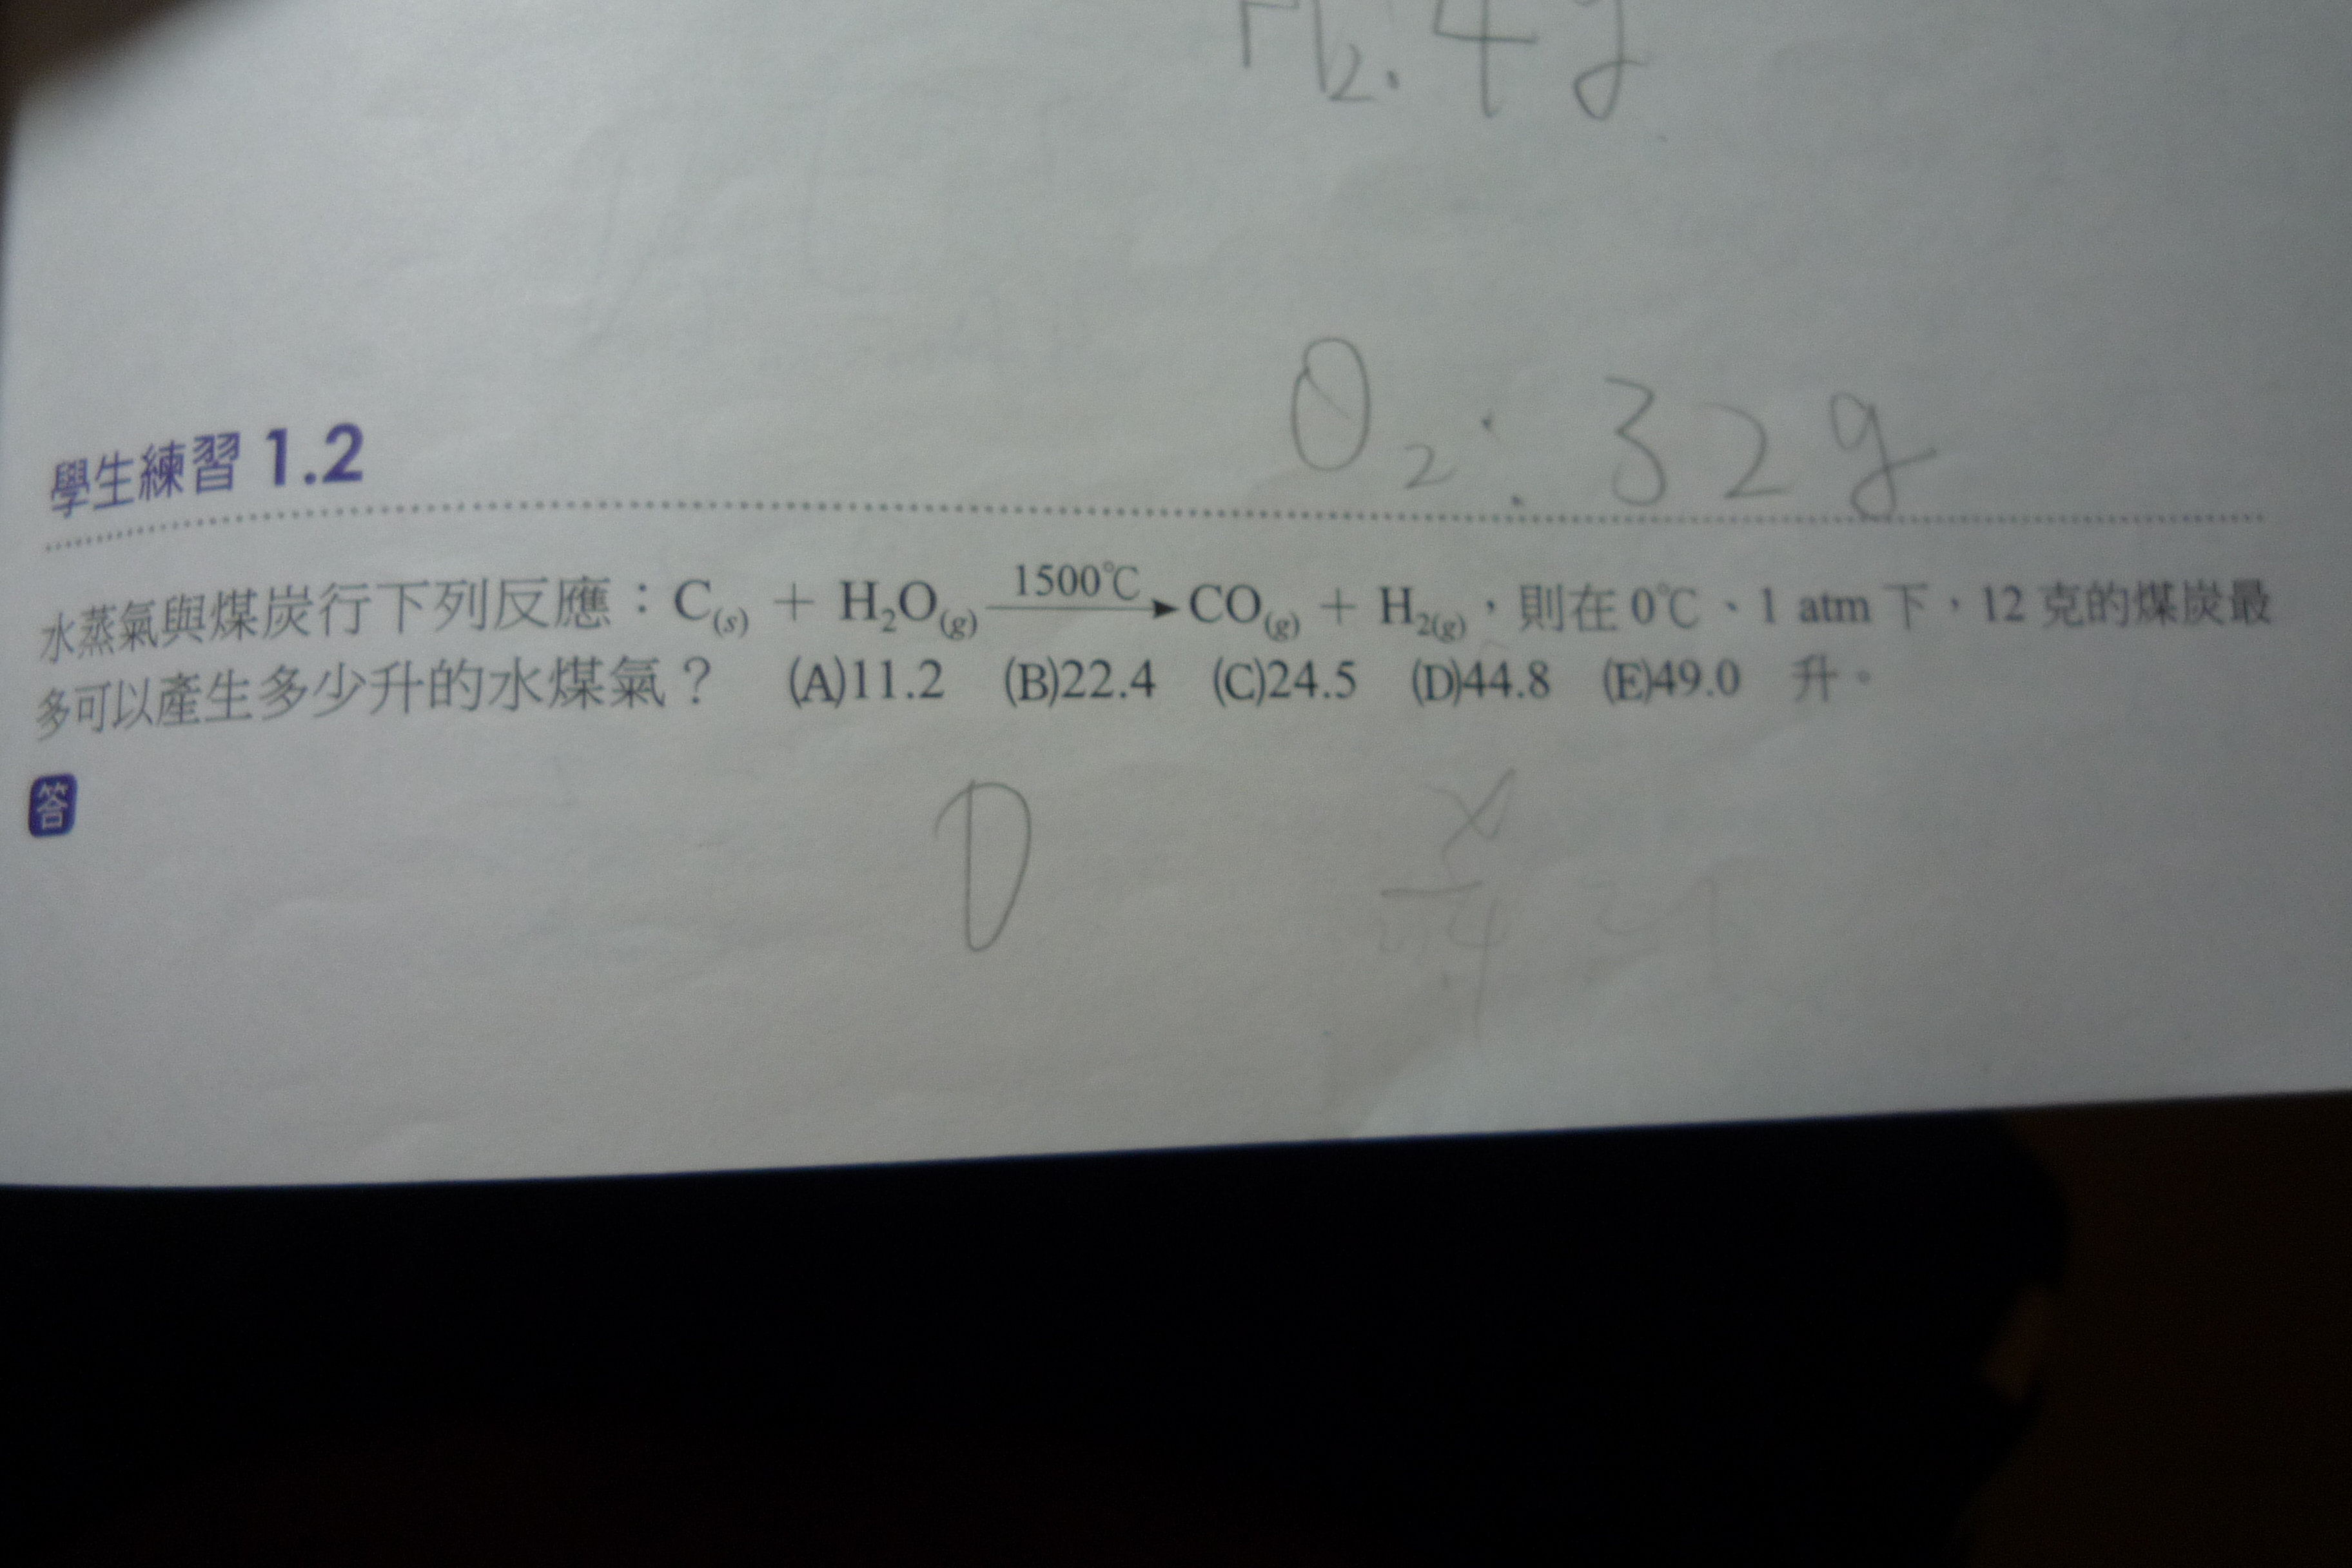 H₂: 4g
O₂: 32g
學生練習 1.2
水蒸氣與煤炭行下列反應：C(s) + H₂O(g) 1500℃→ CO(g) + H₂(g)，則在 0℃、1 atm 下，12 克的煤炭最
多可以產生多少升的水煤氣？ (A)11.2 (B)22.4 (C)24.5 (D)44.8 (E)49.0 升。
答
D